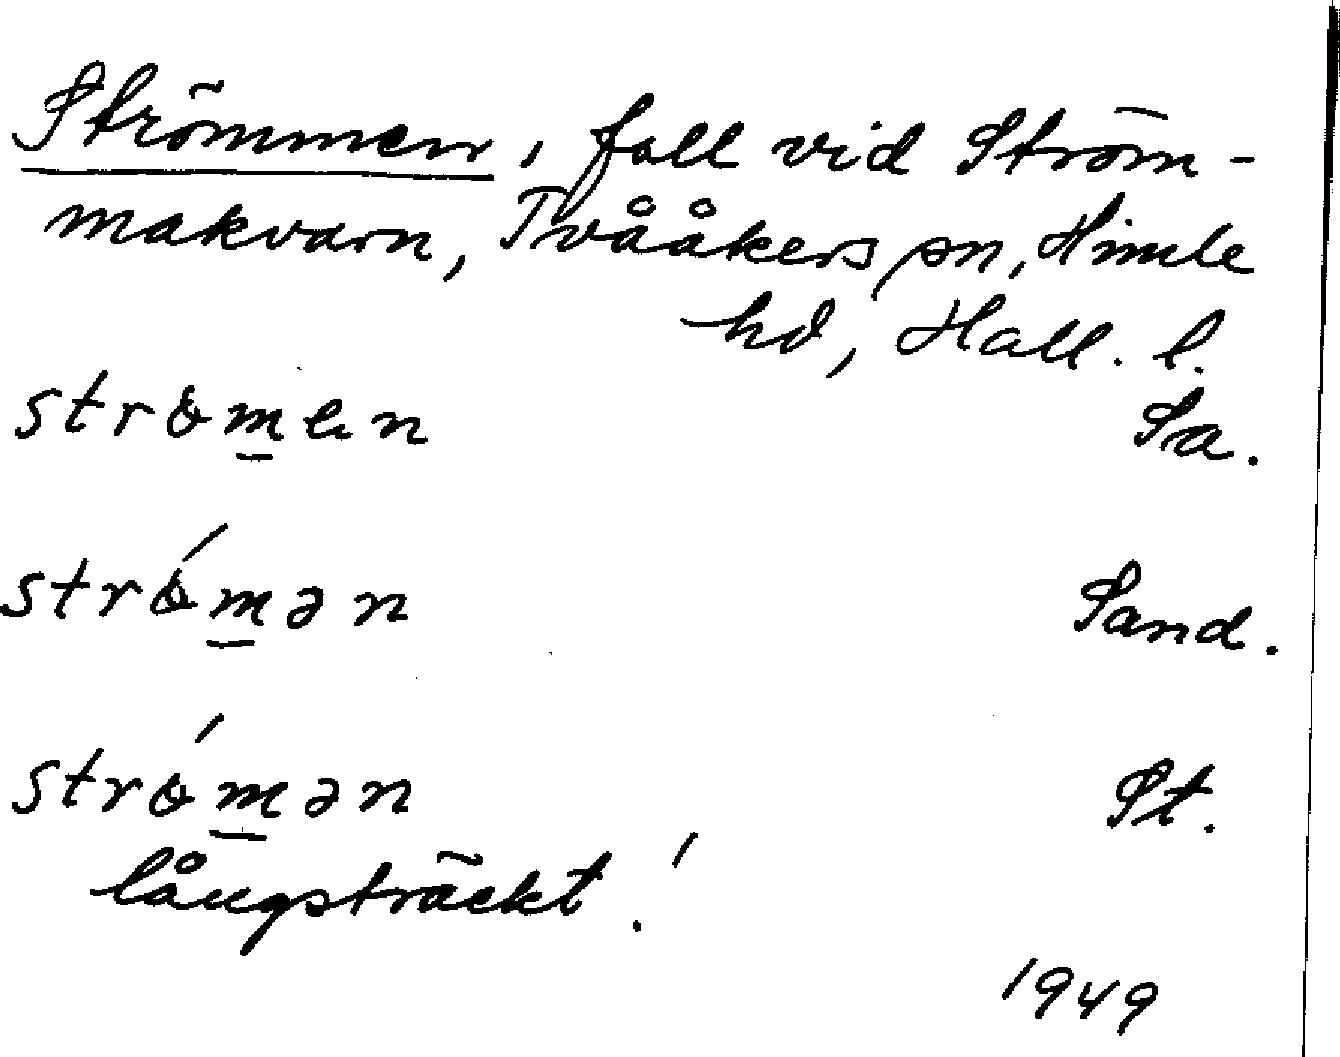 Strömmen, fall vid Ström-
makvarn, Tvååkers sn, Himle
hd, Hall. l.
strömen Sa.
strö́mən Sand.
strö́mən St.
långsträckt.
1949